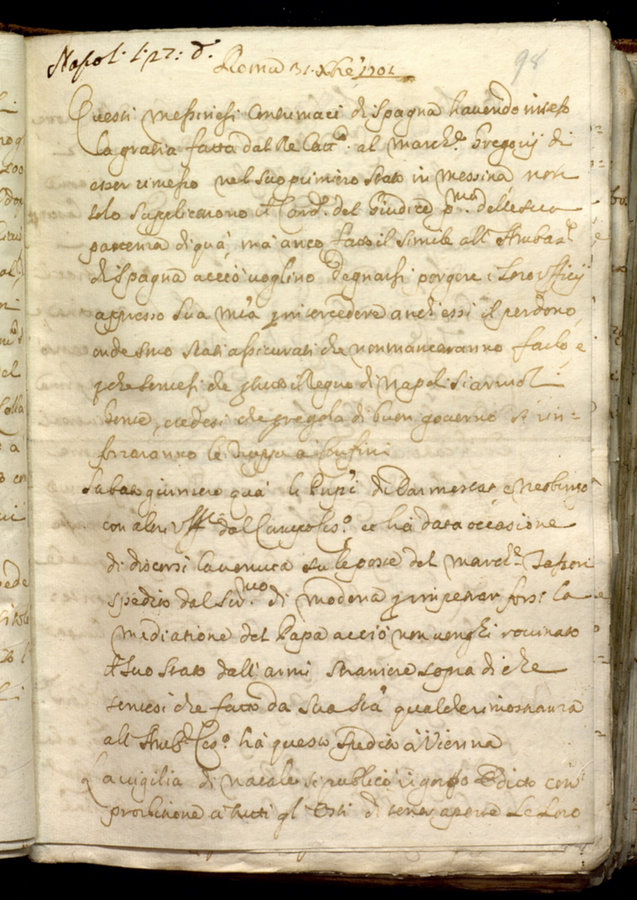 Napol. l. 27: d.
98
Roma 31. Xbre 1701
Questi Messinesi Contumaci di Spagna havendo inteso
la gratia fatta dal Re Catt.º al March.e Gregorij di
esser rimesso nel suo primiero stato in Messina non
solo supplicorono il Card.l del Giudice p.ma della sua
partenza di quà, mà anco fatto il simile all'Ambas.r
di Spagna acciò voglino degnarsi porgere i loro Ufficij
appresso Sua M.tà p intercedere anch'essi il perdono,
onde sono stati assicurati che non mancaranno farlo, e
p che sentesi che p tutto il Regno di Napoli si arrol
gente, credesi che p regola di buon governo si rin=
forzaranno le Truppe a i Confini
Sabato giunsero quà li Prpi di Darmestat e
con altri Uff.li dal Campo Ces.º, e hà data occasione
di discorsi la venuta su le poste del March.e
spedito dal Ser.mo di Modena p impetrar fors. la
mediatione del Papa acciò non venghi rovinato
il suo stato dall'armi straniere sopra di che
sentesi che fatto da Sua S.tà qualche rimostranza
all'Amb.r Ces.º hà questo spedito à Vienna
La vigilia di natale si publicò rigoroso Editto con
proibitione à tutti gl'Osti di tener aperte le loro